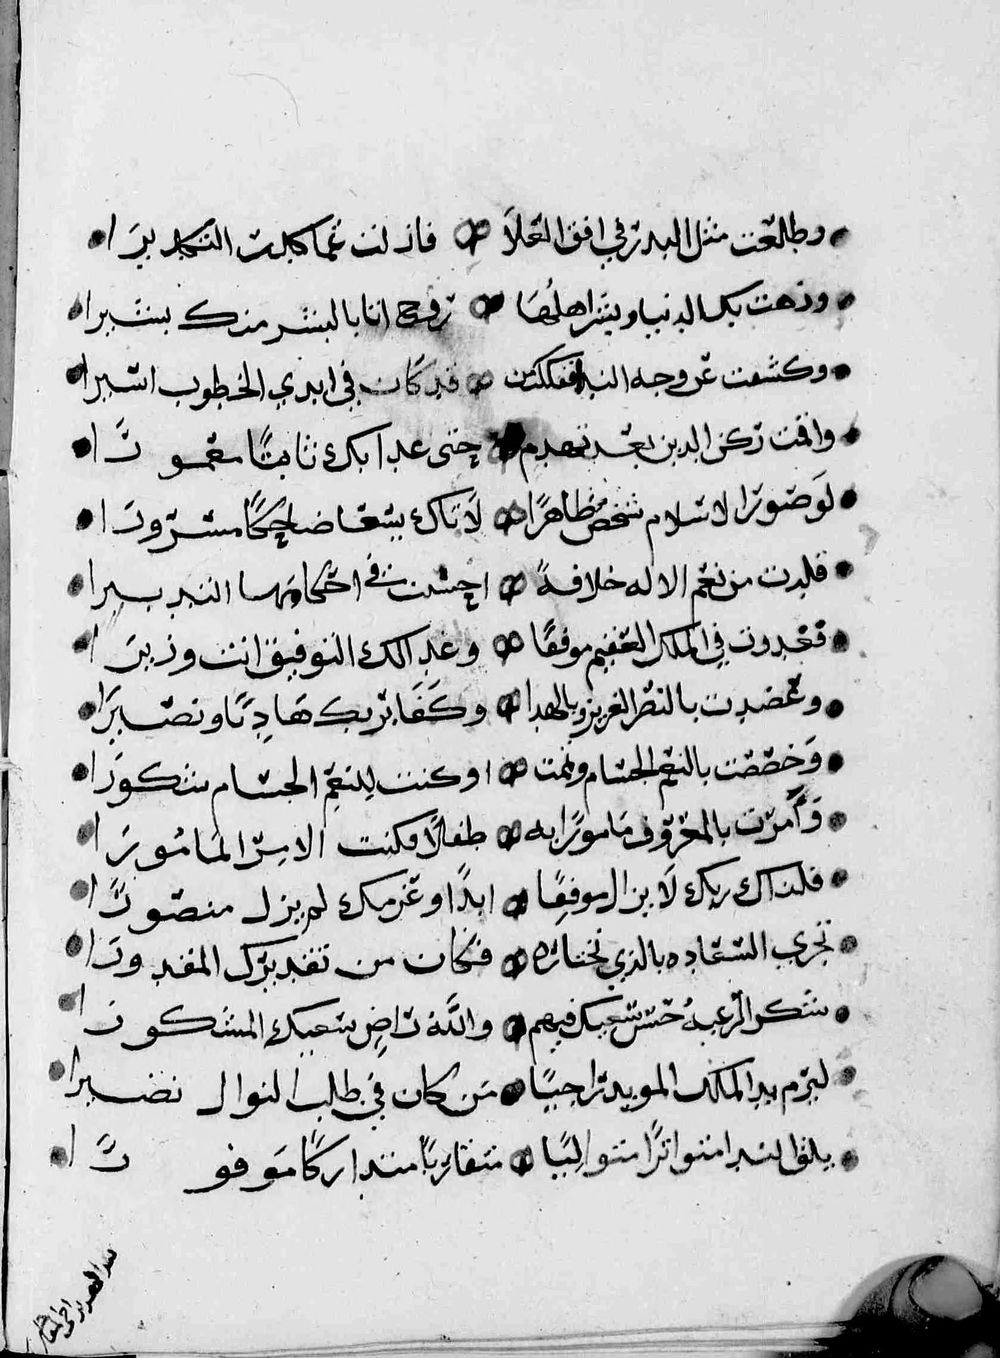 وطلعت مثل البدر في افق العلا فازلت عما كدرت التكديرا
وزهت بك الدنيا وبشر اهلها زوج انا بالبشر منك بشيرا
وكشفت عن وجه الندا ففككت قد كان في ايدي الخطوب اسيرا
واقمت ركن الدين بعد تهدم حتى غدا بك ثابتا معمورا
لو صور الاسلام شخص ظاهرا لاتاك يسعا ضاحكا مسرورا
قلدت من نعم الاله خلافة احسنت في احكامها التدبيرا
فغدوت في الملك العقيم موفقا وغدا لك التوفيق انت وزيرا
وعضدت بالنصر العزيز وبالهدا وكفا بربك هاديا ونصيرا
وخصصت بالنعم الجسام ونمت اوكنت للنعم الجسام شكورا
وامرت بالمعروف مامورا به طفلا فكنت الامر المامورا
فلذاك ربك لا يزال موفقا ابدا وعزمك لم يزل منصورا
تجري السعاده بالذي تختاره فكان من تقديرك المقدورا
شكر الرعية حسن سعيك فيهم والله راض سعيك المشكورا
ليرم يد الملك المويد راجيا من كان في طلب النوال نضيرا
يلقا الندا متواترا متواليا متقاربا متداركا موفورا